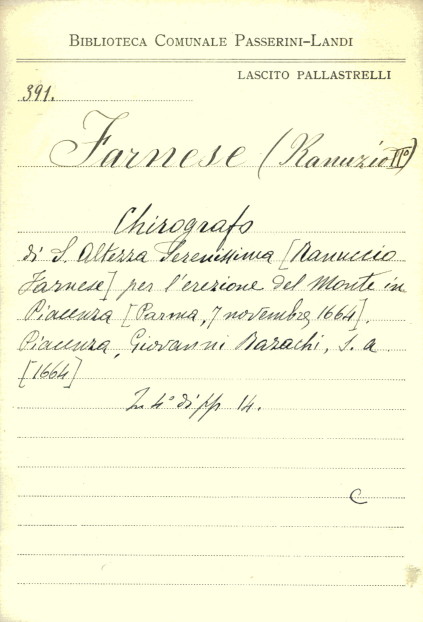 BIBLIOTECA COMUNALE PASSERINI-LANDI
LASCITO PALLASTRELLI
391.
Farnese (Ranuzio IIº)
Chirografo
di S. Altezza Serenissima [Rannuccio
Farnese] per l'erezione del Monte in
Piacenza [Parma, 7 novembre 1664].
Piacenza, Giovanni Bazachi, s. a
[1664]
In 4º di pp 14.
C